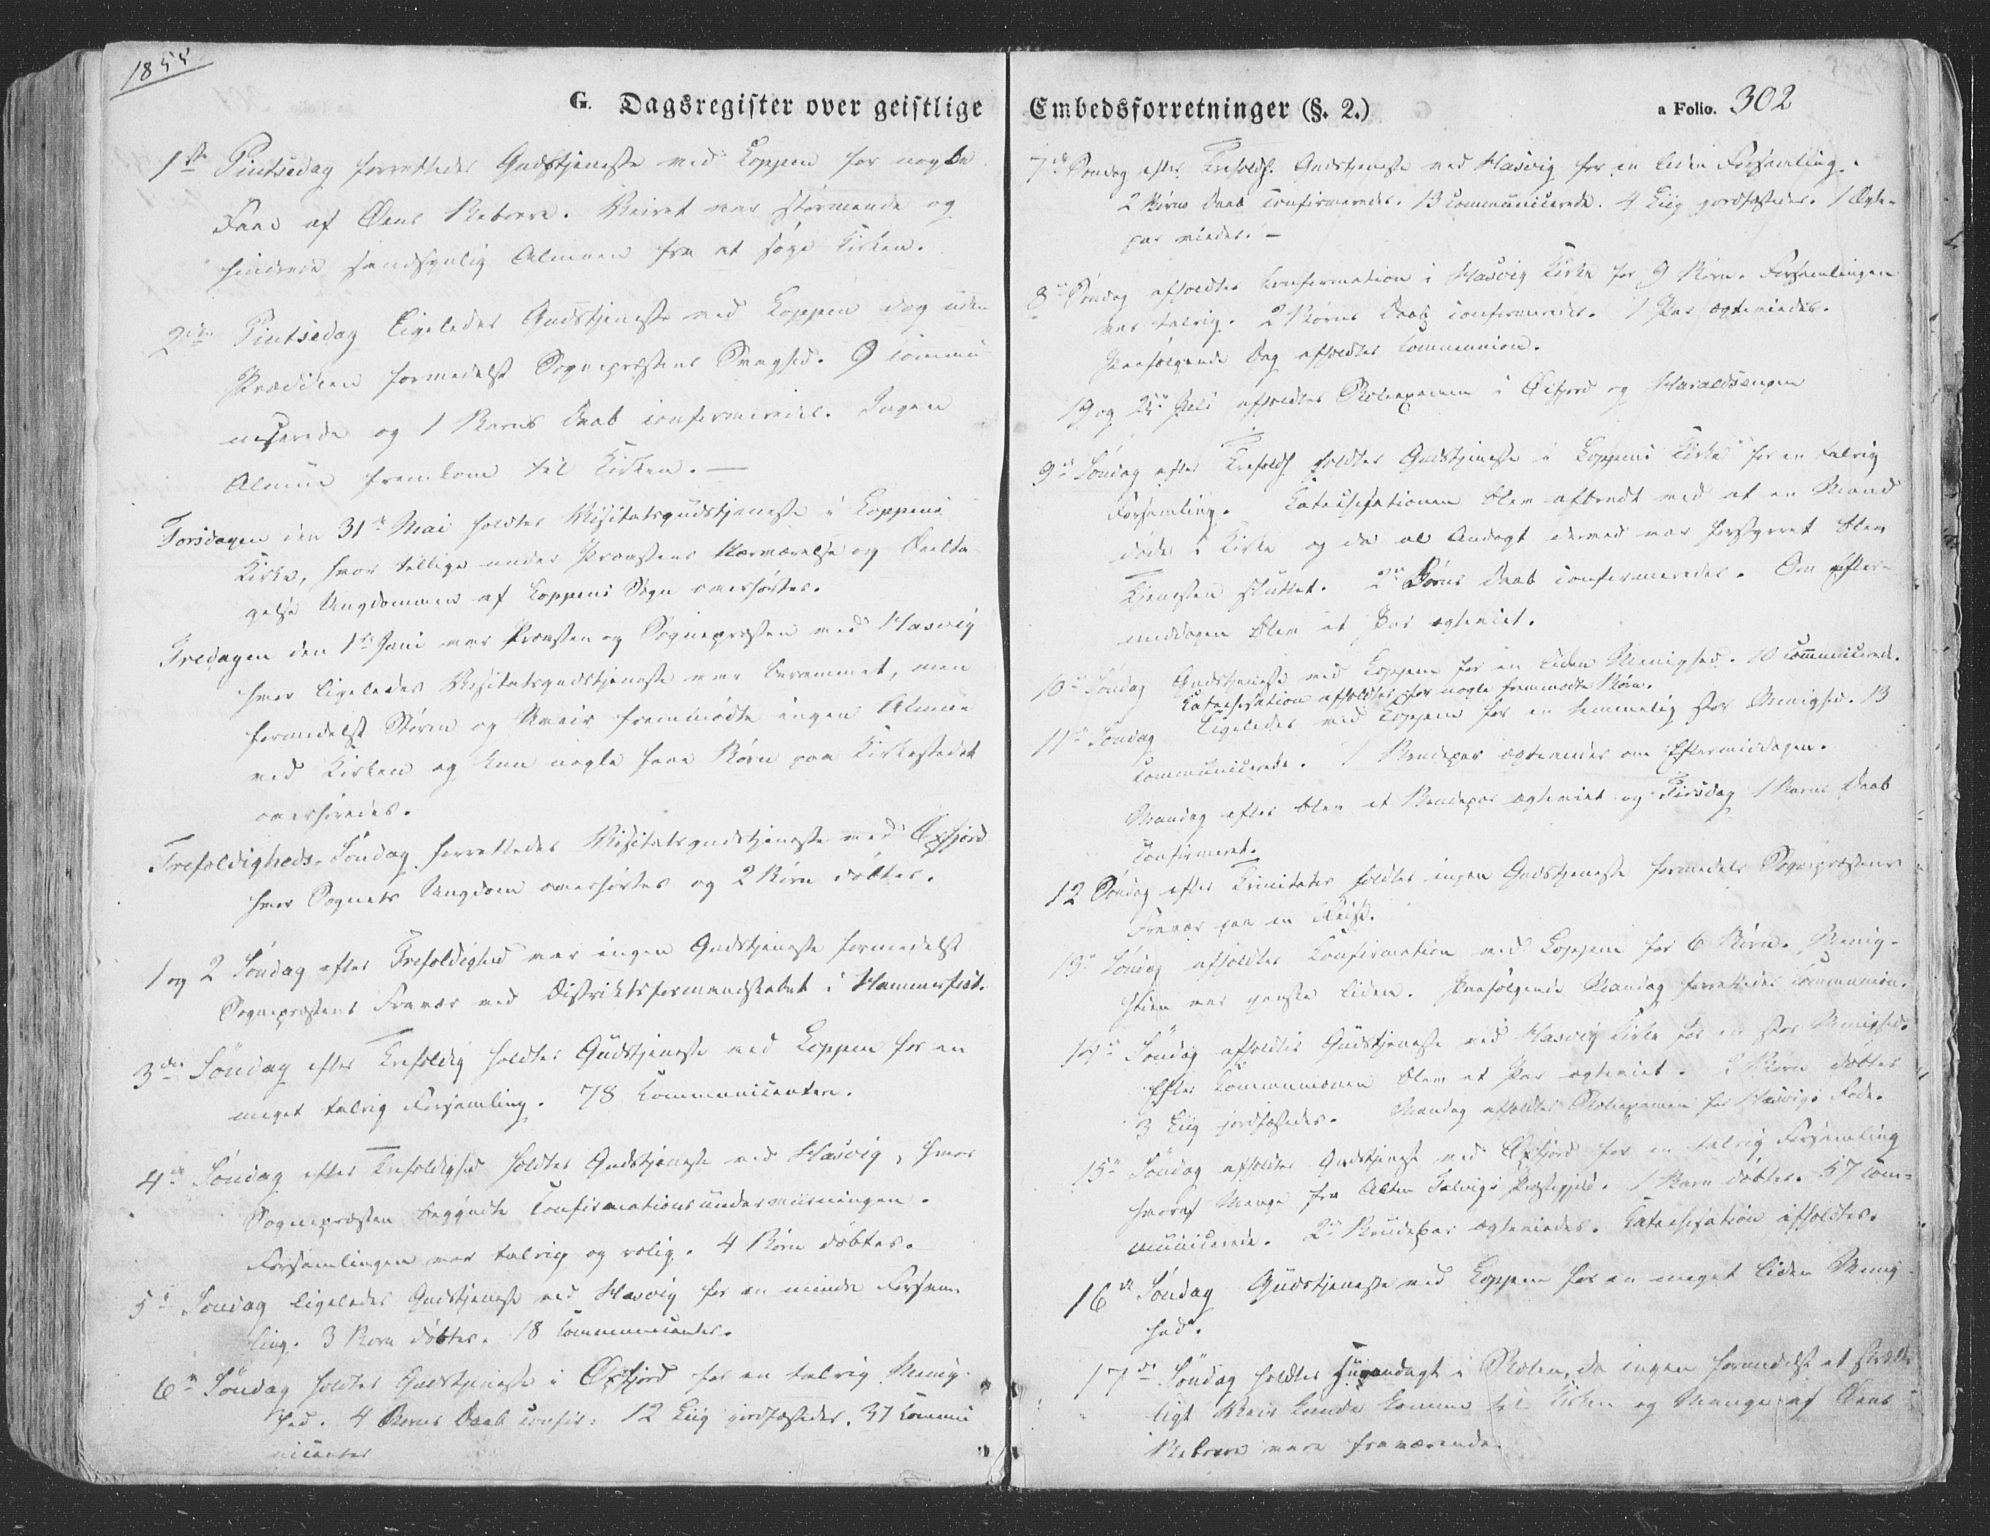 1855
G. Dagsregister over geistlige Embedsforretninger (§. 2.)
a Folio. 302
1ste Pintsedag forrettedes Gudstjeneste ved Loppen for nogle
Faae af Øens Beboere. Veiret var stormende og
hindrede sandsynlig Almuen fra at søge Kirken.
2den Pintsedag ligeledes Gudstjeneste ved Loppen dog uden
Prædiken formedelst Sognepræstens Svaghed. 9 commu
nicerede og 1 Barns Daab confirmeredes. Ingen
Almue fremkom til Kirken. —
Torsdagen den 31te Mai holdtes Visitatsgudstjeneste i Loppens
Kirke, hvor tillige under Provstens Nærværelse og Deelta
gelse Ungdommen af Loppens Sogn overhørtes.
Fredagen den 1ste Juni var Provsten og Sognepræsten ved Hasvig
hvor ligeledes Visitatsgudstjeneste var berammet, men
formedelst Storm og Uveir fremmødte ingen Almue
ved Kirken og kun nogle faae Børn paa Kirkestedet
overhøredes.
Trefoldigheds-Søndag forrettedes Visitatsgudstjeneste ved Øxfjord
hvor Sognets Ungdom overhørtes og 2 Børn døbtes.
1 og 2 Søndag efter Trefoldighed var ingen Gudstjeneste formedelst
Sognepræstens Fravær ved Distriktsformandskabet i Hammerfest.
3die Søndag efter Trefoldig holdtes Gudstjeneste ved Loppen for en
meget talrig Forsamling. 78 Kommunicanter.
4de Søndag efter Trefoldighed holdtes Gudstjeneste ved Hasvig, hvor
Sognepræsten begyndte Confirmationsunderviisningen.
Forsamlingen var talrig og rolig. 4 Børn døbtes.
5te Søndag ligeledes Gudstjeneste ved Hasvig for en mindre Forsam
ling. 3 Børn døbtes. 18 Communicanter.
6te Søndag holdtes Gudstjeneste i Øxfjord for en talrig Menig
hed. 4 Børns Daab confir: 12 Liig jordfæstedes. 37 Commu
nicanter
7de Søndag efter Trefoldh. Gudstjeneste ved Hasvig for en liden Forsamling.
2 Børns Daab confirmeredes. 13 communicerede. 4 Liig jordfæstedes. 1 Ægte-
par viedes. —
8de Søndag afholdtes Confirmation i Hasvig Kirke for 9 Børn. Forsamlingen
var talrig. 2 Børns Daab confirmeredes. 1 Par ægteviedes.
Paafølgende Dag afholdtes Communion.
19 og Juli afholdtes Skoleexamen i Øxfjord og Haraldsengen
9de Søndag efter Trefoldh holdtes Gudstjeneste i Loppens Kirke for en talrig
Forsamling. Catechisationen blev afbrudt ved at en Mand
døde i Kirke og da al Andagt derved var forstyrret blev
Tjenesten sluttet. 2de Børns Daab confirmeredes. Om Efter-
middagen blev et Par ægteviet.
10de Søndag Gudstjeneste ved Loppen for en liden Menighed. 10 Communicerede.
Catechisation afholdtes for nogle fremmødte Børn.
11te Søndag ligeledes ved Loppen for en temmelig stor Menighed. 13
Communicerede. 1 Brudepar ægteviedes om Eftermiddagen.
Mandag efter blev et Brudepar ægteviet og Tirsdag 1 Barns Daab
confirmeret.
12 Søndag efter Trinitatis holdtes ingen Gudstjeneste formedels Sognepræstens
Fravær paa en Reise.
13de Søndag afholdtes Confirmation ved Loppen for 6 Børn. Menig-
heden var ganske liden. Paafølgende Mandag forrettedes Communion.
14de Søndag afholdtes Gudstjeneste ved Hasvig Kirke for en stor Menighed.
Efter Communionen blev et Par ægteviet. 2 Børn døbtes
3 Liig jordfæstedes. Mandag afholdtes Skoleexamen for Hasvigs Rode.
15de Søndag afholdtes Gudstjeneste ved Øxfjord for en talrig Forsamling
hvoraf Mange fra Alten Talvigs Præstegjeld. 1 Barn døbtes. 57 com-
municerede. 2de Brudepar ægteviedes. Catechisation afholdtes.
16de Søndag Gudstjeneste ved Loppen for en meget liden Menig
hed.
17de Søndag holdtes Huusandagt i Skolen, da ingen formedelst et
ligt Veir kunde komme til Kirken og Mange af Øens
Beboere vare fraværende.